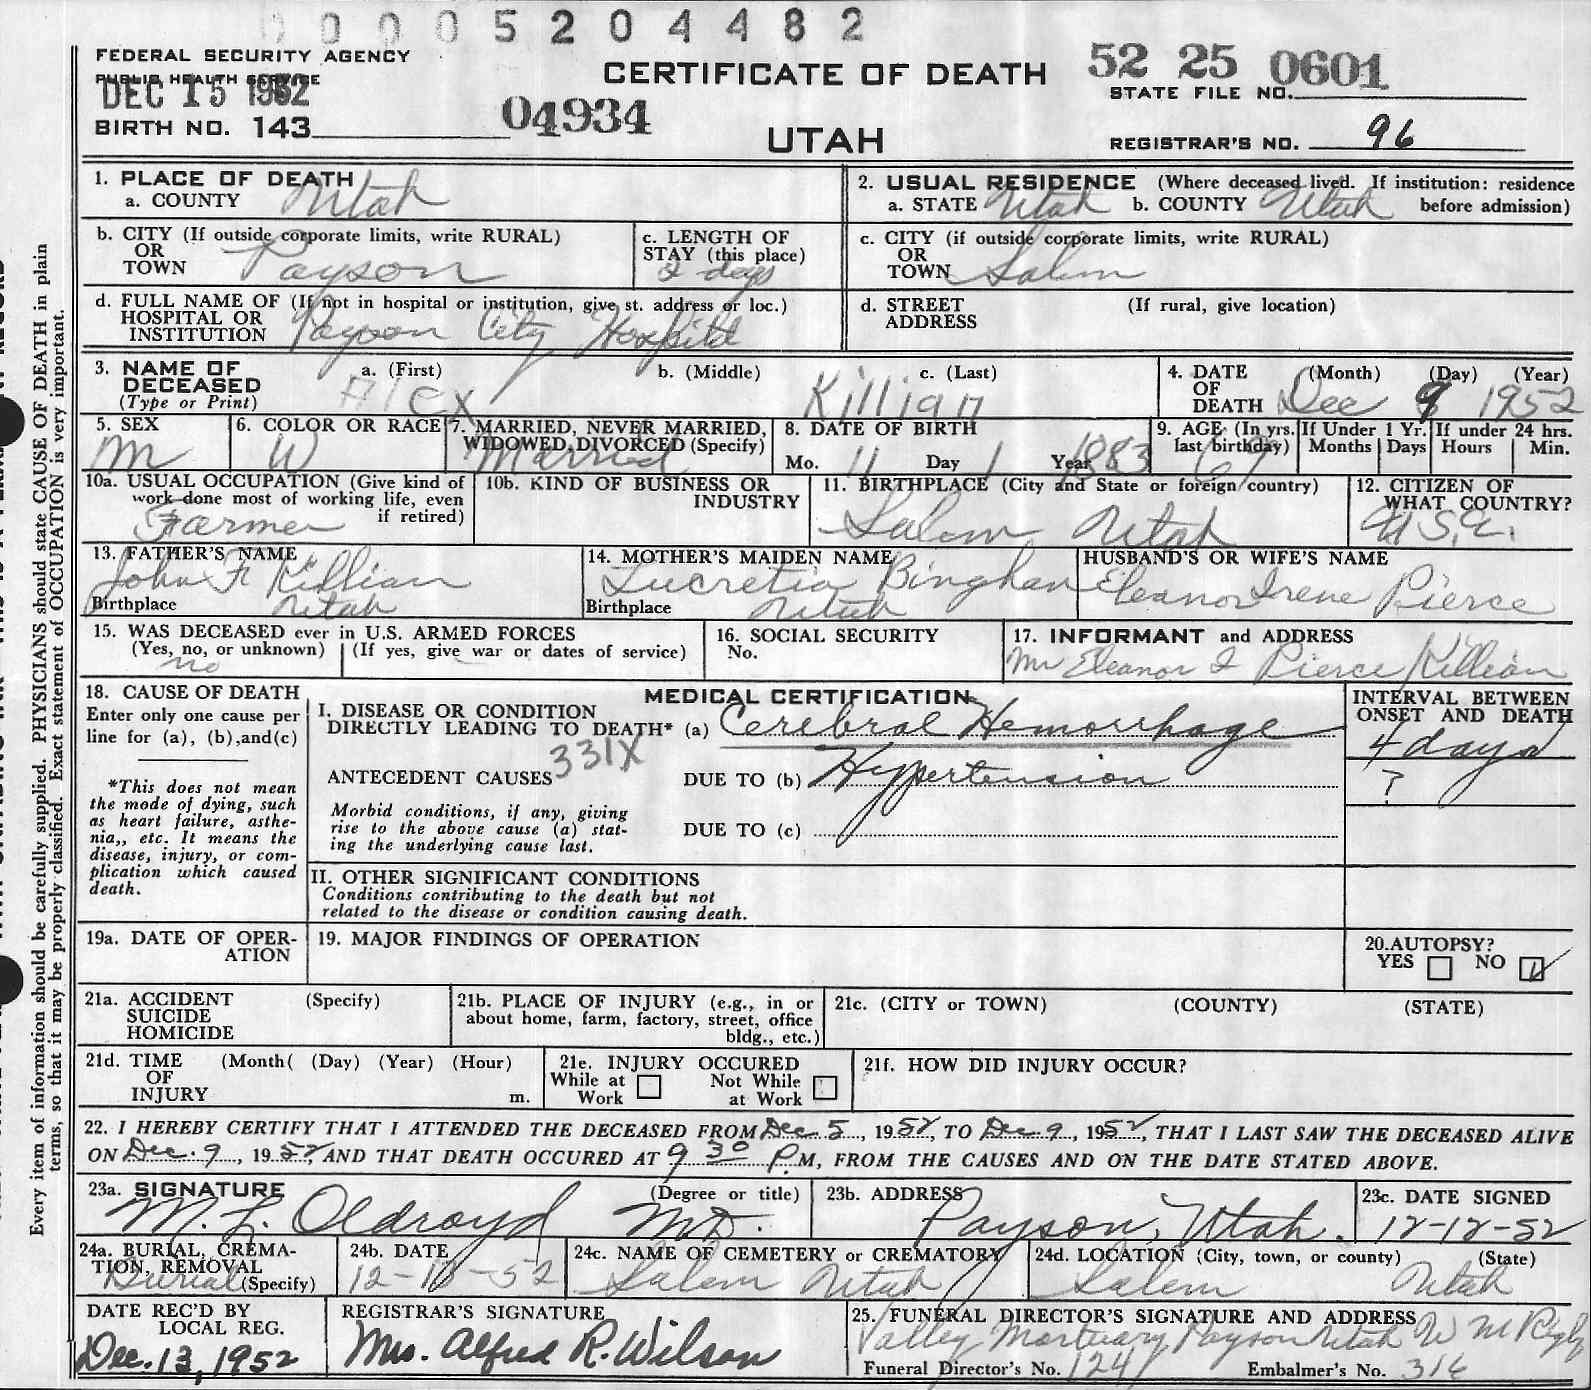 0005204482
FEDERAL SECURITY AGENCY
PUBLIC HEALTH SERVICE
DEC 15 1952
CERTIFICATE OF DEATH
52 25 0601
STATE FILE NO.
BIRTH NO. 143
04934
UTAH
REGISTRAR'S NO. 96
1. PLACE OF DEATH
a. COUNTY Utah
2. USUAL RESIDENCE (Where deceased lived. If institution: residence
a. STATE Utah b. COUNTY Utah before admission)
b. CITY (If outside corporate limits, write RURAL)
OR
TOWN Payson
c. LENGTH OF
STAY (this place)
2 days
c. CITY (if outside corporate limits, write RURAL)
OR
TOWN Salem
d. FULL NAME OF (If not in hospital or institution, give st. address or loc.)
HOSPITAL OR
INSTITUTION Payson City Hospital
d. STREET (If rural, give location)
ADDRESS
3. NAME OF a. (First) b. (Middle) c. (Last)
DECEASED
(Type or Print) Alex Killian
4. DATE (Month) (Day) (Year)
OF
DEATH Dec 9 1952
5. SEX
M
6. COLOR OR RACE
W
7. MARRIED, NEVER MARRIED,
WIDOWED, DIVORCED (Specify)
Married
8. DATE OF BIRTH
Mo. 11 Day 1 Year 1883
9. AGE (In yrs.
last birthday) 69
If Under 1 Yr.
Months Days
If under 24 hrs.
Hours Min.
10a. USUAL OCCUPATION (Give kind of
work done most of working life, even
if retired)
Farmer
10b. KIND OF BUSINESS OR
INDUSTRY
11. BIRTHPLACE (City and State or foreign country)
Salem Utah
12. CITIZEN OF
WHAT COUNTRY?
U.S.A.
13. FATHER'S NAME
John F Killian
Birthplace Utah
14. MOTHER'S MAIDEN NAME
Lucretia Bingham
Birthplace Utah
HUSBAND'S OR WIFE'S NAME
Eleanor Irene Pierce
15. WAS DECEASED ever in U.S. ARMED FORCES
(Yes, no, or unknown) (If yes, give war or dates of service)
no
16. SOCIAL SECURITY
No.
17. INFORMANT and ADDRESS
Eleanor I Pierce Killian
18. CAUSE OF DEATH
Enter only one cause per
line for (a), (b), and (c)
*This does not mean
the mode of dying, such
as heart failure, asthe-
nia,, etc. It means the
disease, injury, or com-
plication which caused
death.
MEDICAL CERTIFICATION
I. DISEASE OR CONDITION
DIRECTLY LEADING TO DEATH* (a) Cerebral Hemorrhage
331X
ANTECEDENT CAUSES DUE TO (b) Hypertension
Morbid conditions, if any, giving
rise to the above cause (a) stat-
ing the underlying cause last.
DUE TO (c)
INTERVAL BETWEEN
ONSET AND DEATH
4 days
?
II. OTHER SIGNIFICANT CONDITIONS
Conditions contributing to the death but not
related to the disease or condition causing death.
19a. DATE OF OPER-
ATION
19. MAJOR FINDINGS OF OPERATION
20. AUTOPSY?
YES NO
21a. ACCIDENT (Specify)
SUICIDE
HOMICIDE
21b. PLACE OF INJURY (e.g., in or
about home, farm, factory, street, office
bldg., etc.)
21c. (CITY or TOWN) (COUNTY) (STATE)
21d. TIME (Month( (Day) (Year) (Hour)
OF
INJURY m.
21e. INJURY OCCURED
While at Work Not While at Work
21f. HOW DID INJURY OCCUR?
22. I HEREBY CERTIFY THAT I ATTENDED THE DECEASED FROM Dec. 5, 1952, TO Dec 9, 1952, THAT I LAST SAW THE DECEASED ALIVE
ON Dec. 9, 1952, AND THAT DEATH OCCURED AT 9 30 P.M, FROM THE CAUSES AND ON THE DATE STATED ABOVE.
23a. SIGNATURE (Degree or title)
M. L. Oldroyd MD.
23b. ADDRESS
Payson, Utah.
23c. DATE SIGNED
12-12-52
24a. BURIAL, CREMA-
TION, REMOVAL
Burial (Specify)
24b. DATE
24c. NAME OF CEMETERY or CREMATORY
Salem Utah
24d. LOCATION (City, town, or county) (State)
Salem Utah
DATE REC'D BY
LOCAL REG.
Dec. 13, 1952
REGISTRAR'S SIGNATURE
Mrs. Alfred R. Wilson
25. FUNERAL DIRECTOR'S SIGNATURE AND ADDRESS
Valley Mortuary Payson Utah
Funeral Director's No. 124 Embalmer's No. 316
Every item of information should be carefully supplied. PHYSICIANS should state CAUSE OF DEATH in plain
terms, so that it may be properly classified. Exact statement of OCCUPATION is very important.